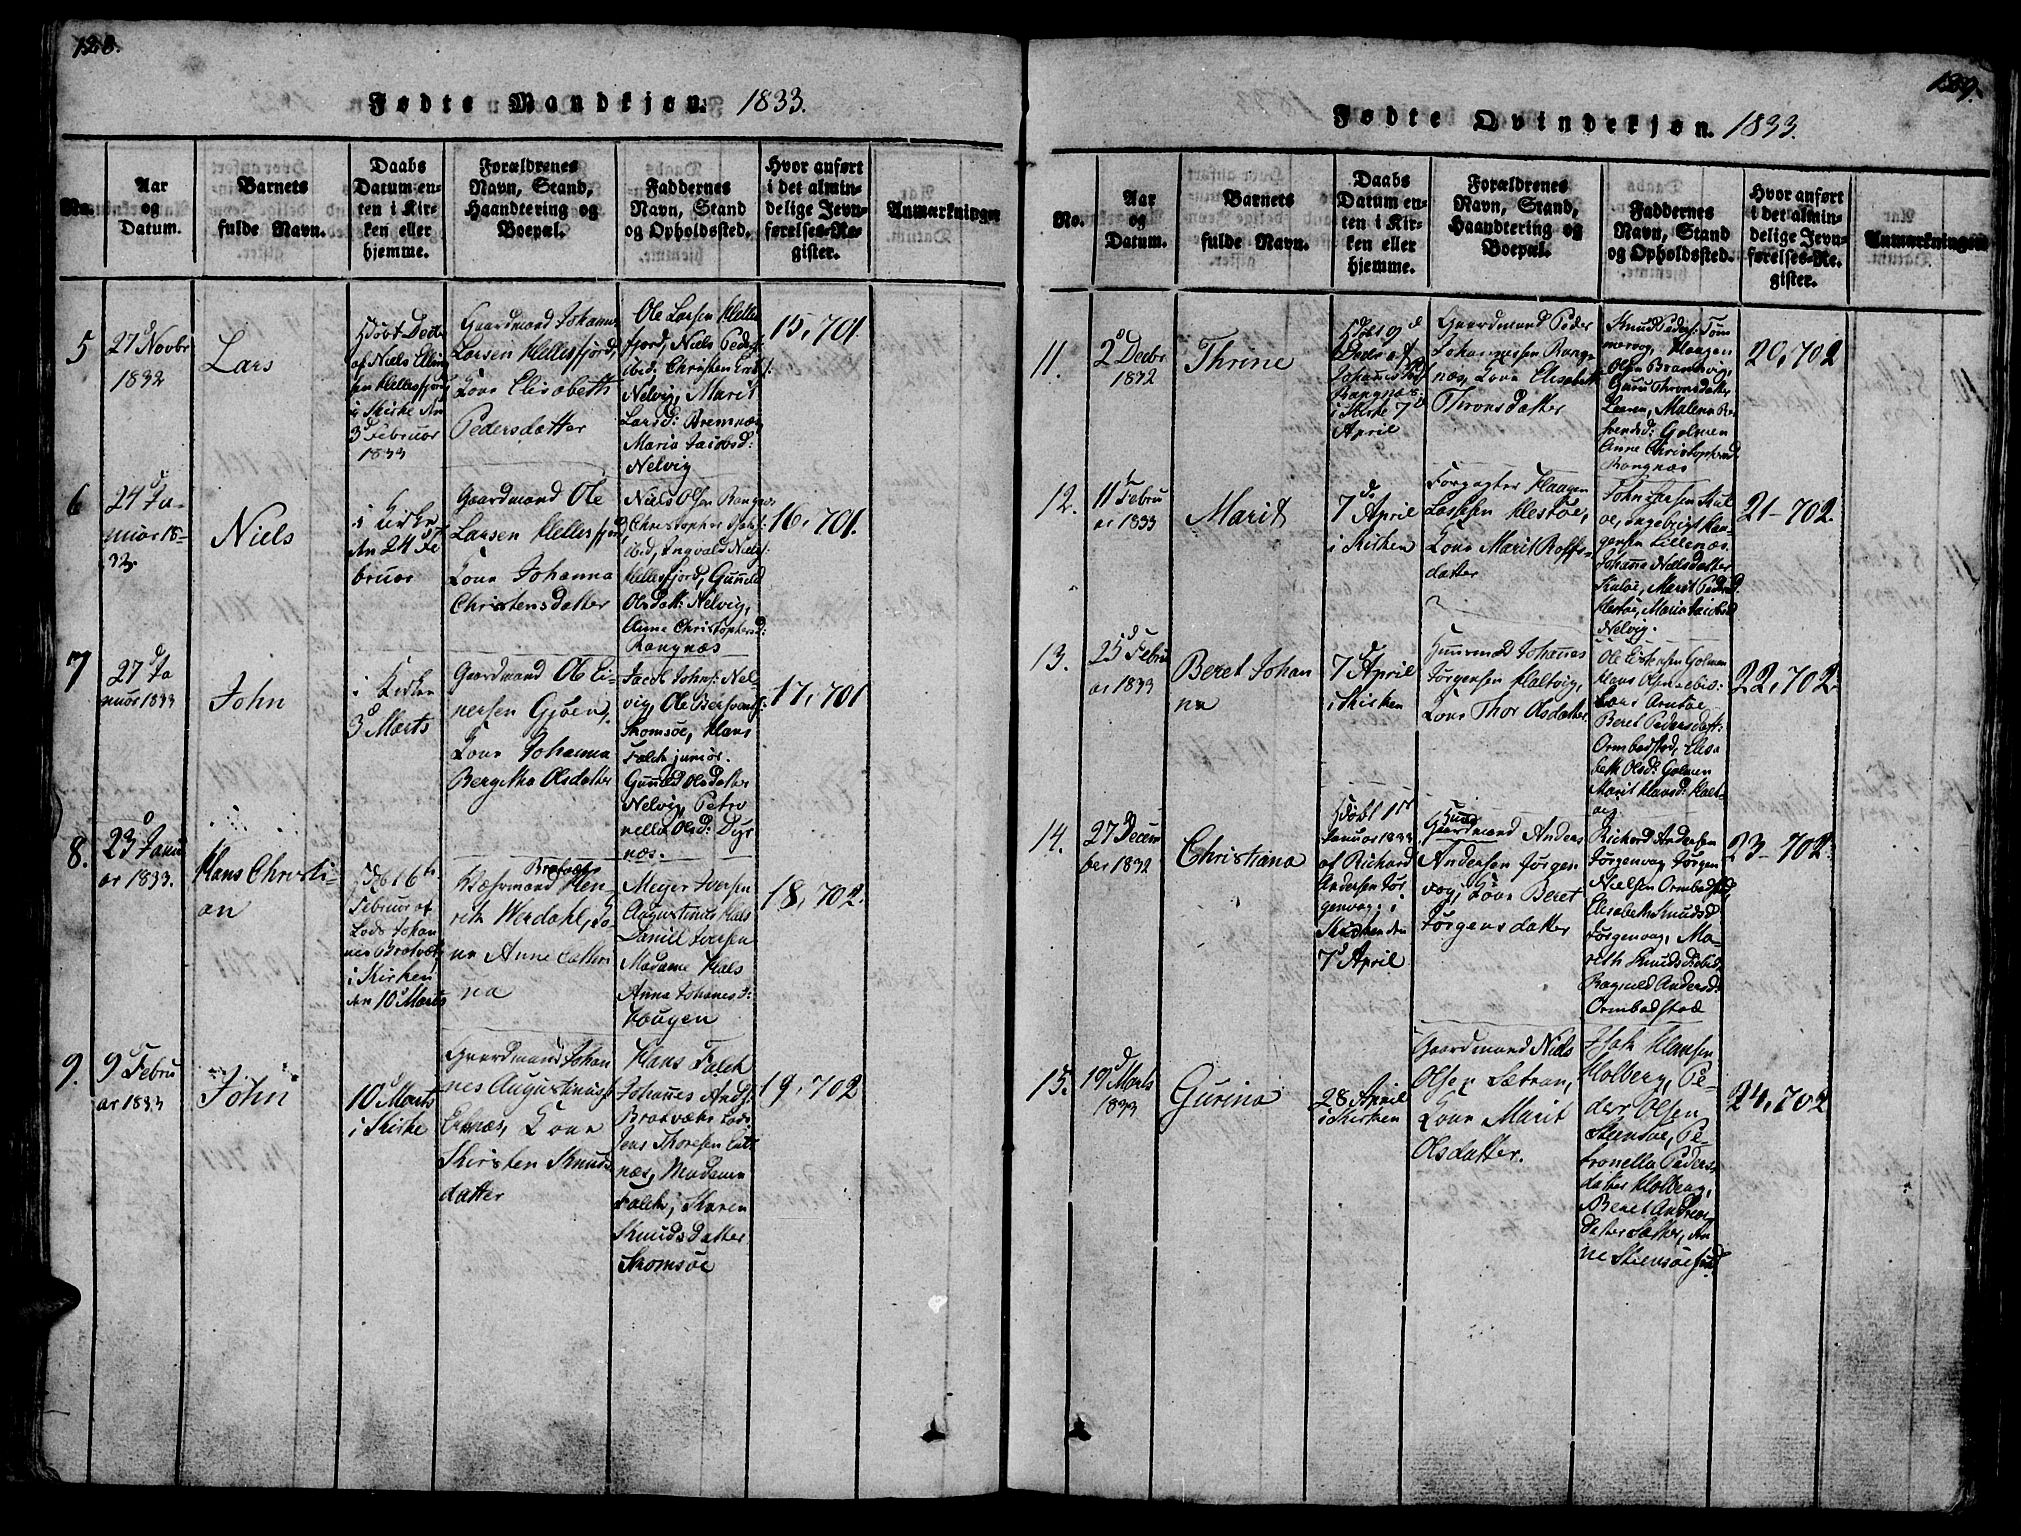 128.
Fødte Mandkjøn. 1833.
No.
Aar
og
Datum.
Barnets
fulde Navn.
Daabs
Datum en-
ten i Kir-
ken eller
hjemme.
Forældrenes
Navn, Stand,
Haandtering og
Boepæl.
Faddernes
Navn, Stand
og Opholdssted.
Hvor anført
i det almin-
delige Jevn-
førelses-Re-
gister.
Anmærkninger
5
27d Novbr
1832
Lars
Hdøbt
af Niels
Hellesfjord
i Kirke
3d Februar
1833
Gaardmand Johannes
Larsen Hellesfjord,
Kone Elisabeth
Pedersdatter
Ole Larsen Helles
fjord, Niels Peders:
ibid: Christen
Nelvig, Marit
Larsd: Bremnæs
Maria Jacobsd:
Nelvig
15, 701.
6
24d Ja-
nuar 18-
33.
Niels
i Kirke
den 24d Fe
bruar
Gaardmand Ole
Larsen Hellesfjord,
Kone Johanna
Christensdatter
Niels Olsen Rangnæs
Christopher
ibid, Ingvald Niels:
Hellesfjord, Gunild
Olsdatt: Nelvig,
Anne Christophersd:
Rangnæs
16, 701.
7
27d Ja
nuar 1833
John
i Kirken
3d Marts
Gaardmand Ole Ei-
nersen Gjøen,
Kone Johanna
Bergitha Olsdatter
Jacob Johns: Nel-
vig, Ole
Skomsøe, Hans
Falch junior.
Gunild Olsdatter
Nelvig, Petro
nella Olsd: Dyr
næs.
17, 701
8.
23d Janu
ar 1833.
Hans Christi-
an
6th
Februar af
Lods Johan
nes Bratvær
i Kirken
den 10d Marts
Bratvær
Hen-
rik Werdahl, Ko-
ne Anne Cathri
na
Meyer Iversen
Augustinus Hals
Daniel Iversen
Madame Hals
Anna Johanesd:
Hougen
18, 702.
9.
9d Febru
ar 1833
John
10d Marts
i Kirke
Gaardmand Johan
nes Augustinuss:
Kone
Kirsten Knuds
datter
Hans Falch
Johannes Ands:
Bratvær Lods
Jens Thoresen
næs, Madame
Falch, Karen
Knuds Datter
Skomsøe
19, 702
129.
Fødte Qvindekjøn. 1833.
No.
Aar
og
Datum.
Barnets
fulde Navn.
Daabs
Datum en-
ten i Kir-
ken eller
hjemme.
Forældrenes
Navn, Stand,
Haandtering og
Boepæl.
Faddernes
Navn, Stand
og Opholdssted.
Hvor anført
i det almin-
delige Jevn-
førelses-Re-
gister.
Anmærkninger
11.
2d Decbr
1832
Thrine
Johannes
Rangnæs
i Kirke 7d
April
Gaardmand Peder
Johannessen Rang-
næs, Kone Elisabeth
Thronsdatter
Knud Peders: Tøm
mervog, Haagen
Olsen Brandvig,
Guru Thronsdatter
Leeren, Malena
Golmen
Anne Christophersd
Rangnæs
20, 702
12.
11d Febru
ar 1833
Marit
7d April
i Kirken
Forpagter Haagen
Lassesen Hestøe,
Kone Marit Rolfs-
datter
John Larsen
øe, Ingebrigt Haa-
gensen Lillenæs.
Johanna Nielsdatter
Marit Peders:
Hestøe, Maria Jacobsd
Nelvig.
21- 702.
13.
25d Febru
ar 1833
Beret Johan
na
7d April
i Kirken
Huusmand Johannes
Jørgensen Haltvig,
Kone Thor Olsdatter
Ole Golmen
Hans ibid:
Arntøe
Beret Pedersdatt:
Ormbostad, Elisa
beth Olsd: Golmen
Marit Hansd: Halt-
vig
22, 702.
14.
27d Decem
ber 1832
Christiana
Hdøbt 1st
Januar 1833
af Richard
Andersen Jør
genvog; i
Kirken den
7d April
Huus
Gaardmand Anders
Andersen Jørgen
vog, Kone Beret
Jørgensdatter
Richard Andersen
Jørgenvog, Jørgen
Nielsen Ormbostad
Elisabeth Knudsd
Jørgenvog, Ma-
reth Knudsd: ibid
Ragnild Andersd:
Ormbostad
23- 702.
15.
19d Marts
1833
Gurina
28 April
i Kirken
Gaardmand Niels
Olsen Sætran,
Kone Marit
Olsdatter.
Hansen
Holberg, Pe-
der Olsen
Steensøe, Pe-
tronella Peders-
datter Holberg,
Beret Andreas
Datter Sætter, An
ne Steensøe
24, 702